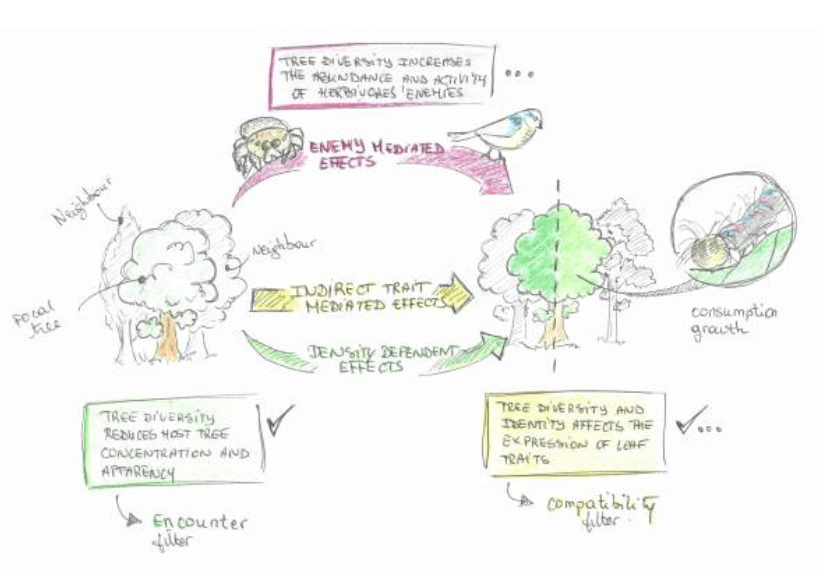 TREE DIVERSITY INCREASES
THE ABUNDANCE AND ACTIVITY
OF HERBIVORES' ENEMIES
...
ENEMY MEDIATED
EFFECTS
Neighbour
Neighbour
Focal
tree
INDIRECT TRAIT
MEDIATED EFFECTS
consumption
growth
DENSITY DEPENDENT
EFFECTS
TREE DIVERSITY
REDUCES HOST TREE
CONCENTRATION AND
APPARENCY
Encounter
filter
TREE DIVERSITY AND
IDENTITY AFFECTS THE
EXPRESSION OF LEAF
TRAITS
...
compatibility
filter